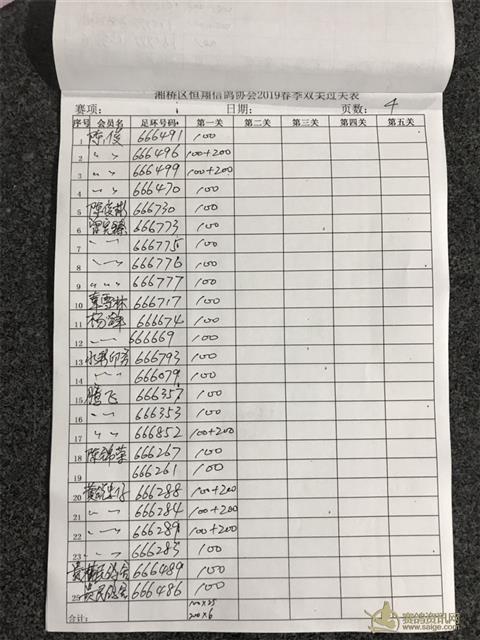 湘桥区恒翔信鸽协会2019春季双关过关表
赛项： 日期： 页数： 4
序号 会员名 足环号码 第一关 第二关 第三关 第四关 第五关
1 陈俊 666491 100
2 〃 〃 666496 100+200
3 〃 〃 666499 100+200
4 〃 〃 666470 100
5 陈俊彬 666730 100
6 666773 100
7 〃 666775 100
8 〃 666776 100
9 〃 〃 666777 100
10 666717 100
11 杨锋 666674 100
12 〃 666669 100
13 666793 100
14 〃 666079 100
15 腾飞 666357 100
16 〃 666353 100
17 〃 〃 666852 100+200
18 陈锦荣 666267 100
19 666261 100
20 666288 100+200
21 〃 666284 100+200
22 〃 666289 100+200
23 〃 〃 666285 100
666489 100
25 666486 100
合计： 100×25
200×6
赛鸽资讯网
www.saige.com